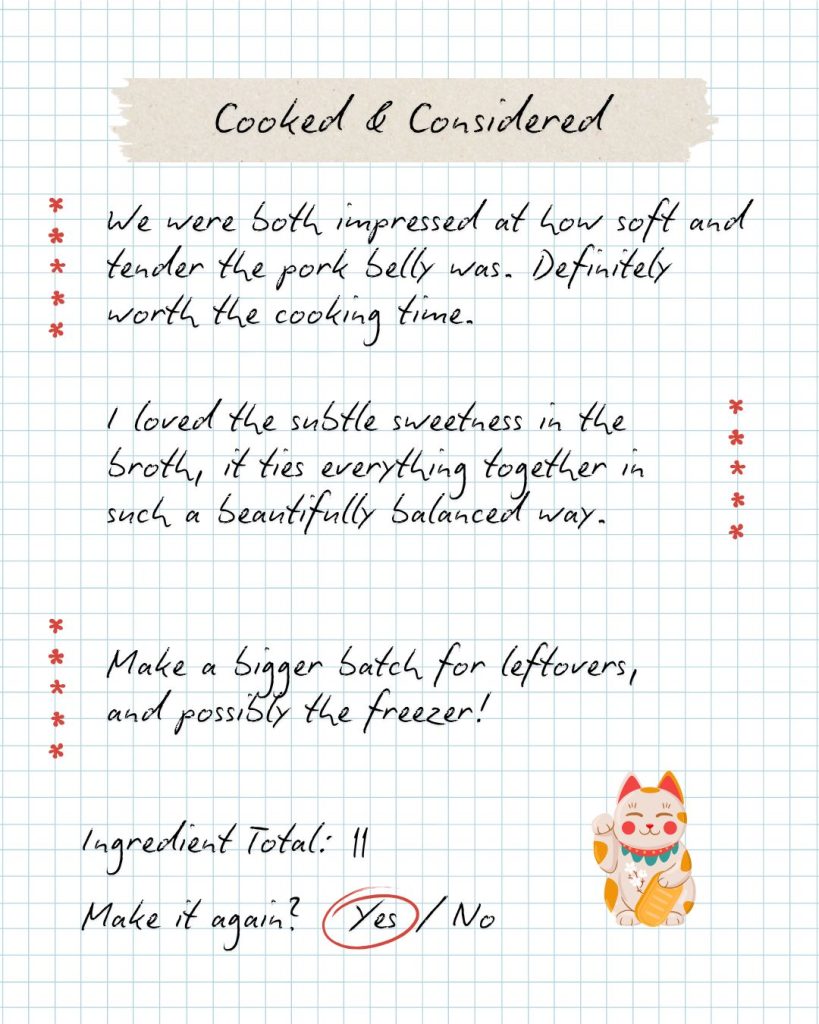 Cooked & Considered
We were both impressed at how soft and
tender the pork belly was. Definitely
worth the cooking time.
I loved the subtle sweetness in the
broth, it ties everything together in
such a beautifully balanced way.
Make a bigger batch for leftovers,
and possibly the freezer!
Ingredient Total: 11
Make it again? Yes / No